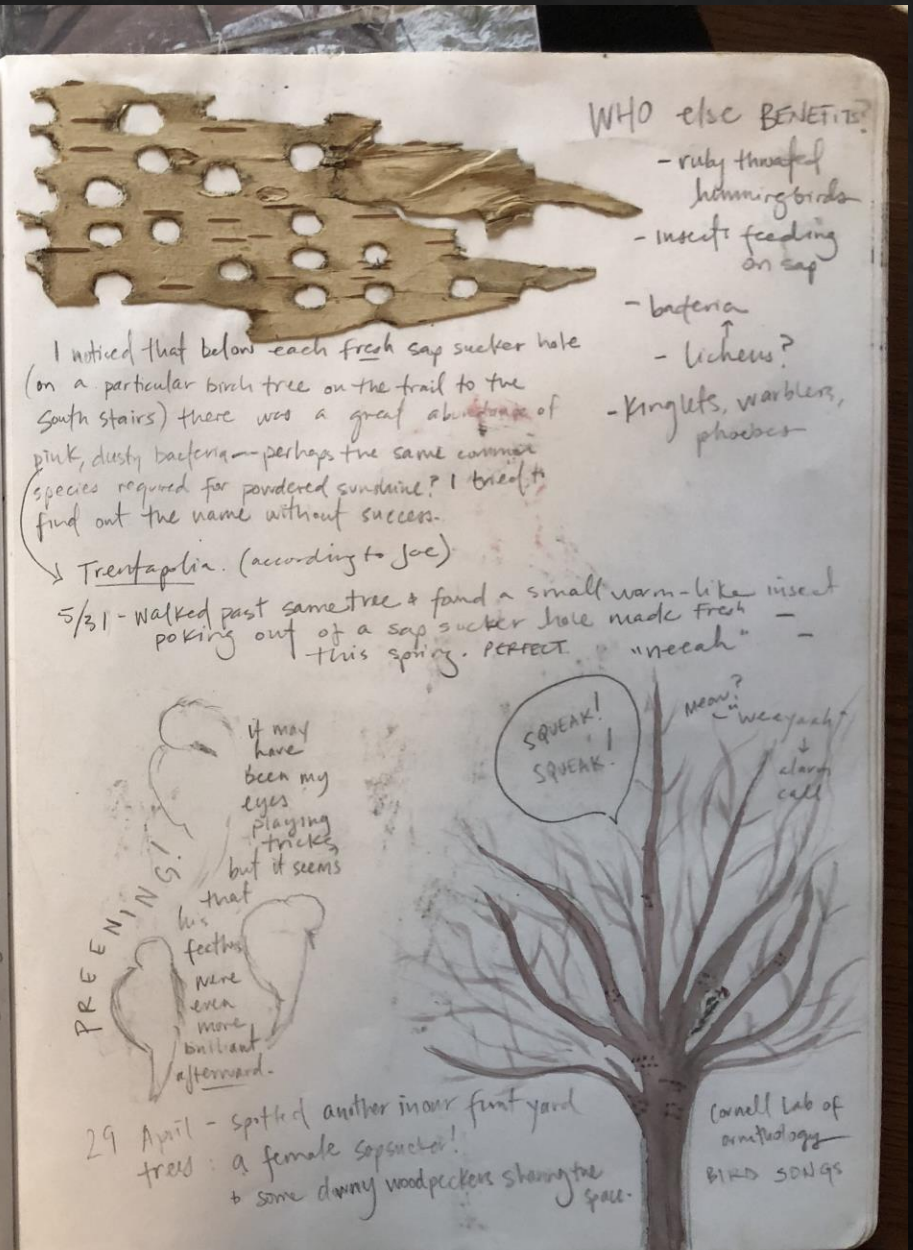 WHO else BENEFITS?
- ruby throated
hummingbirds
- insects feeding
on sap
- bacteria
- lichens?
- Kinglets, warblers,
phoebes
I noticed that below each fresh sap sucker hole
(on a particular birch tree on the trail to the
South stairs) there was a great abundance of
pink, dusty bacteria — perhaps the same common
species required for powdered sunshine? I tried to
find out the name without success.
Trentapolia. (according to Joe)
5/31 - walked past same tree & found a small worm-like insect
poking out of a sap sucker hole made fresh
this spring. PERFECT.
"neeah"
Meow?
"weeyaah"
alarm
call
SQUEAK!
SQUEAK!
it may
have
been my
eyes
playing
tricks,
but it seems
that
his
feathers
were
even
more
brilliant
afterward.
PREENING!
29 April - spotted another in our front yard
trees: a female sapsucker!
& some downy woodpeckers sharing the
space.
Cornell Lab of
ornithology
BIRD SONGS